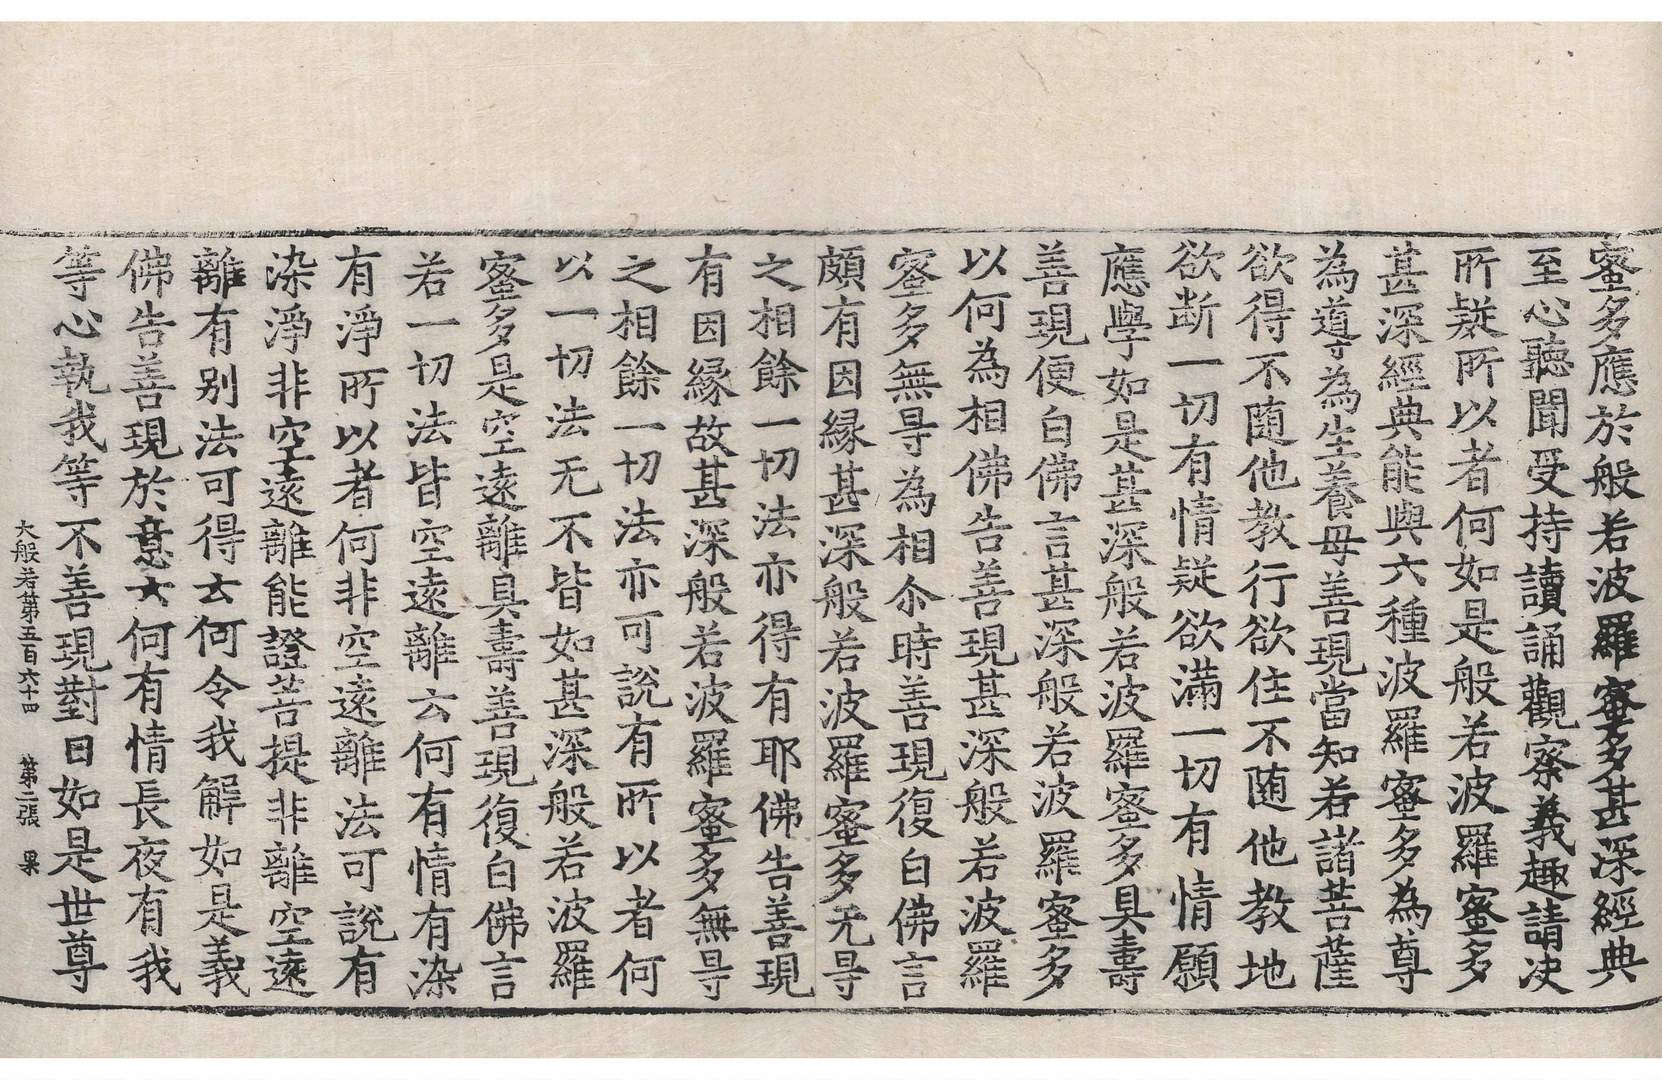 蜜多應於般若波羅蜜多甚深經典
至心聽聞受持讀誦觀察義趣請决
所疑所以者何如是般若波羅蜜多
甚深經典能與六種波羅蜜多為尊
為導為生養母善現當知若諸菩薩
欲得不随他教行欲住不随他教地
欲断一切有情疑欲滿一切有情願
應學如是甚深般若波羅蜜多具壽
善現便白佛言甚深般若波羅蜜多
以何為相佛告善現甚深般若波羅
蜜多無㝵為相尒時善現復白佛言
頗有因縁甚深般若波羅蜜多无㝵
之相餘一切法亦得有耶佛告善現
有因縁故甚深般若波羅蜜多無㝵
之相餘一切法亦可說有所以者何
以一切法无不皆如甚深般若波羅
蜜多是空遠離具壽善現復白佛言
若一切法皆空遠離云何有情有染
有淨所以者何非空遠離法可說有
染淨非空遠離能證菩提非離空遠
離有别法可得云何令我解如是義
佛告善現於意云何有情長夜有我
等心執我等不善現對曰如是世尊
大般若第五百六十四 第二張 果